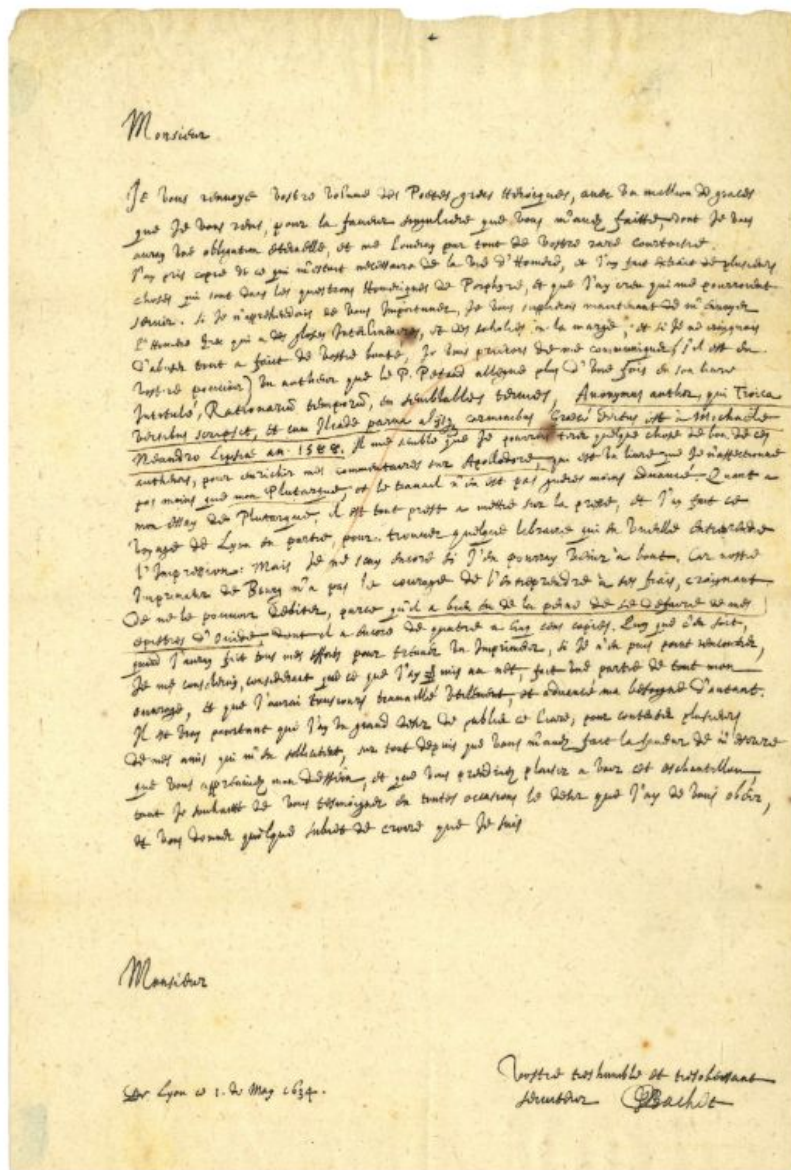 Monsieur
Je vous renvoye vostre volume des Poetes grecs Heroiques, avec un million de graces
que Je vous rens, pour la faveur singuliere que vous m'avez faitte, dont Je vous
auray une obligation eternelle, et me loueray par tout de vostre rare courtoisie.
J'ay pris copie de ce qui m'estoit necessaire de la vie d'Homere, et J'ay fait extrait de plusieurs
choses qui sont dans les questions Homeriques de Porphyre, et que J'ay creu qui me pourroient
servir. Si Je n'aprehendois de vous Importuner, Je vous suplierois maintenant de m'envoyer
l'Homere grec qui a des gloses Interlineaires, et des scholies a la marge, et si Je ne craignois
d'abuser tout a fait de vostre bonté, Je vous prierois de me communiquer (s'il est en
vostre pouvoir) un autheur que le P. Petaud allegue plus d'une fois en son livre
Intitulé, Rationariũ temporũ, en semblables termes, Anonymus author, qui Troica
versibus scripsit, et cum Iliade parva alijsq, carminibus Graecè editus est à Michaële
Neandro Lipsiae an. 1588. Il me semble que Je pourrois tirer quelque chose de bon de ces
autheurs, pour enrichir mes commentaires sur Apollodore, qui est un livre que Je n'affectionne
pas moins que mon Plutarque, et le travail n'en est pas gueres moins advancé. Quant a
mon essay de Plutarque, il est tout prest a mettre sur la presse, et J'ay fait ce
voyage de Lyon en partie, pour trouver quelque libraire qui en veuille entreprendre
l'Impression: Mais Je ne scay encore si J'en pourray venir a bout. Car nostre
Imprimeur de Bourg n'a pas le courage de l'entreprendre a ses frais, craignant
de ne le pouvoir debiter, parce qu'il a bien eu de la peine de se defaire de mes
epistres d'Ovide, dont il a encore de quatre a cinq cens copies. Quoy que c'en soit,
quand J'auray fait tous mes efforts pour trouver un Imprimeur, si Je n'en puis point rencontrer,
Je me consoleray, considerant que ce que J'ay mis au net, fait une partie de tout mon
ouvrage, et que J'aurai tousiours travaillé utilement, et advancé ma besoigne d'autant.
Il est vray pourtant que J'ay un grand desir de publier ce livre, pour contenter plusieurs
de mes amis qui m'en sollicitent, sur tout depuis que vous m'avez fait la faveur de m'escrire
que vous appreuviez mon dessein, et que vous prendriez plaisir a voir cet eschantillon,
tant Je souhaitte de vous tesmoigner en toutes occasions le desir que J'ay de vous obeir,
et vous donner quelque subiet de croire que Je suis
Monsieur
De Lyon ce 1. de May 1634.
Vostre tres humble et tresobeissant
serviteur Bachet